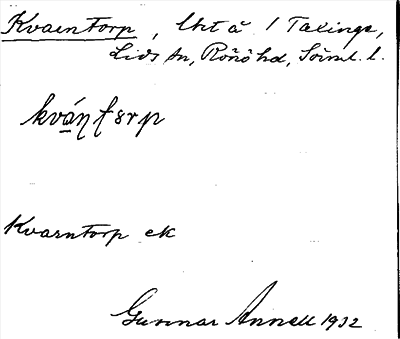 Kvarntorp, Uht å 1 Taxinge,
Lids sn, Rönö hd, Sörml. l.
kvá̱ɳʈɜrp
Kvarntorp ek
Gunnar Annell 1932